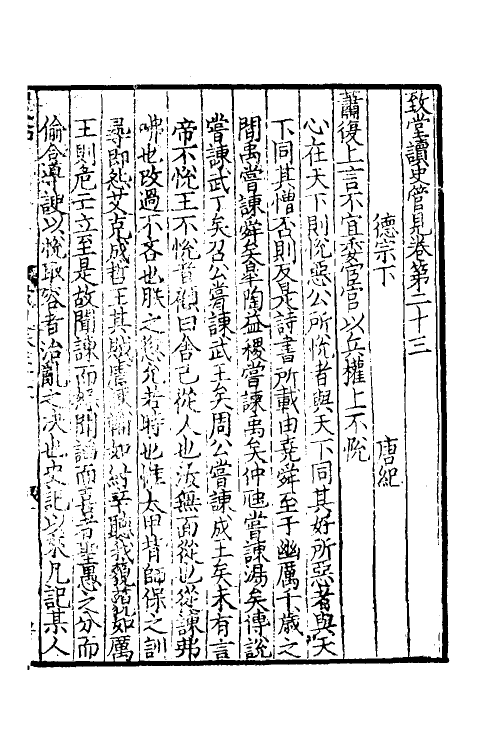 致堂讀史管見卷第二十三
德宗下　唐紀
蕭復上言不宜委宦官以兵權上不悅
心在天下則悅惡公所悅者與天下同其好所惡者與天
下同其憎否則反是詩書所載由堯舜至于幽厲千歲之
間禹嘗諫舜矣皐陶益稷嘗諫禹矣仲虺嘗諫湯矣傳說
嘗諫武丁矣召公嘗諫武王矣周公嘗諫成王矣未有言
帝不悅王不悅者顧曰舍己從人也汝無面從也從諫弗
咈也改過不吝也朕之愆允若時也惟太甲背師保之訓
尋即怨艾克成哲王其賊虐諫輔如紂辛聽我藐藐如厲
王則危亡立至是故聞諫而 聞諂而喜者聖愚之分而
偷合導諛以悅取容者治亂之決也史記以來凡記某人